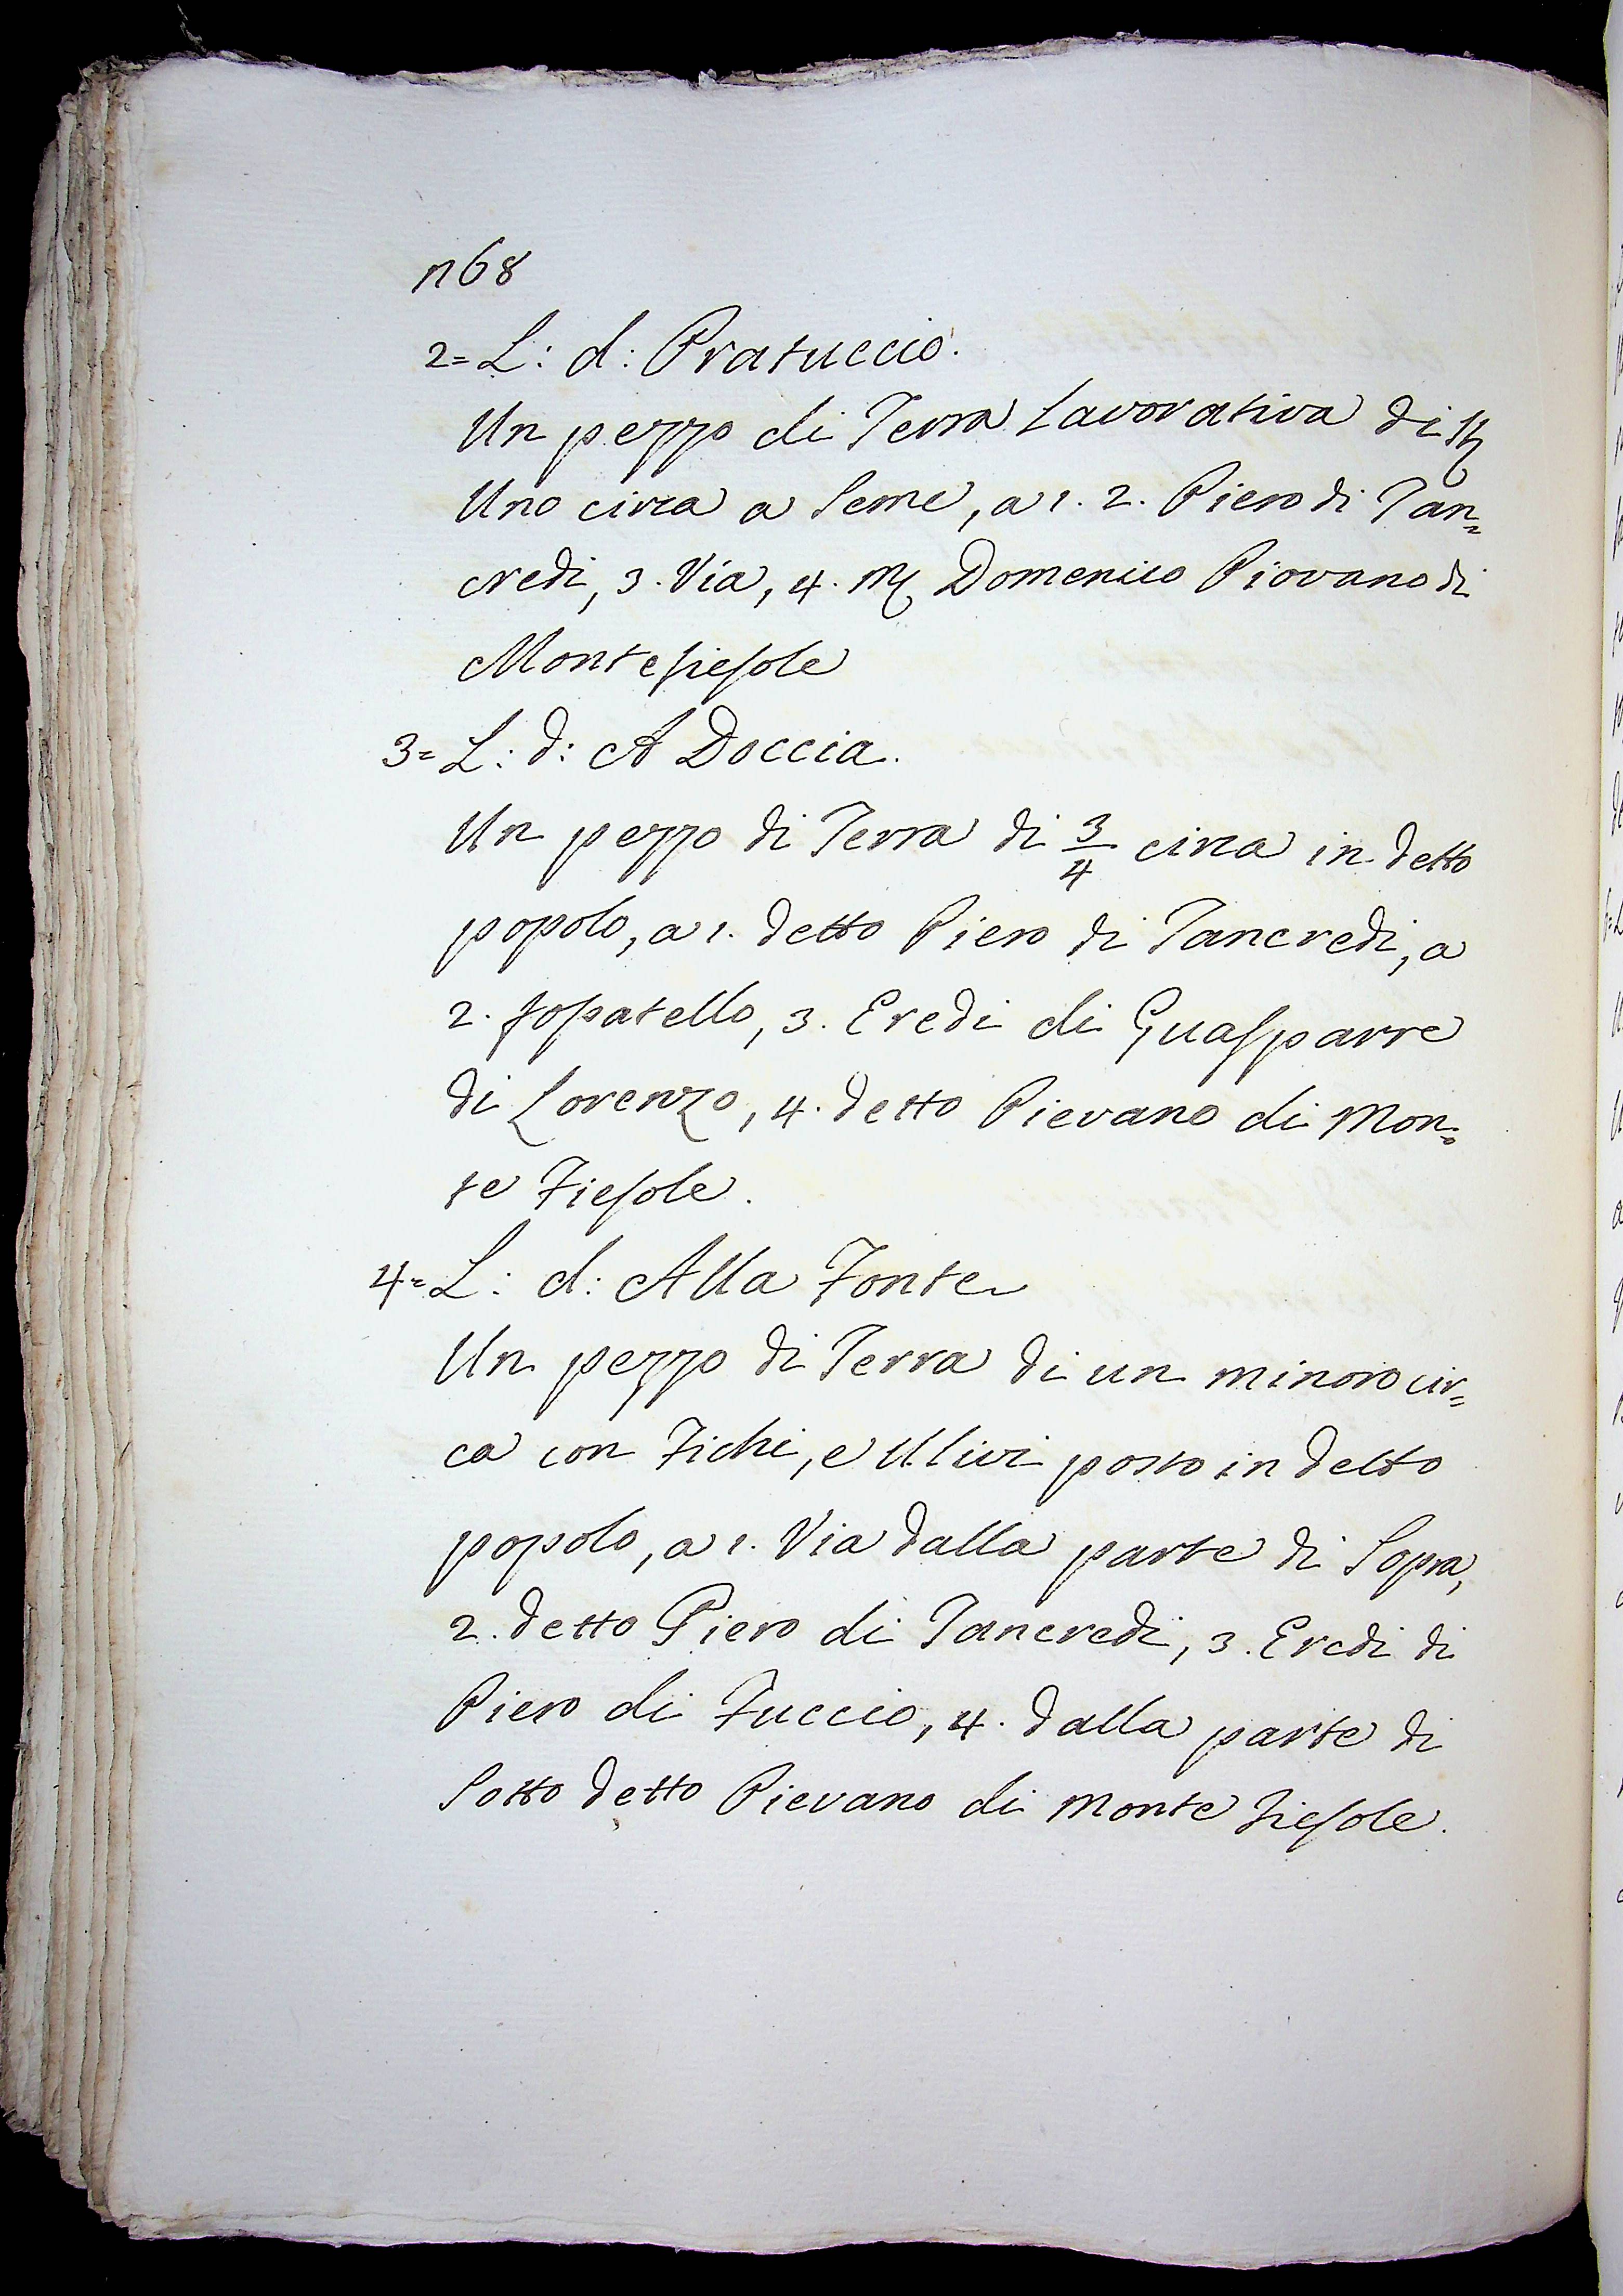 n68
2= L: d: Pratuccio.
Un pezzo di Terra Lavorativa di
Uno circa a Seme, a 1. 2. Piero di Tan=
credi, 3. Via, 4. Domenico Piovano di
Montefiesole
3= L: d: A Doccia.
Un pezzo di Terra di 3/4 circa in detto
popolo, a 1. detto Piero di Tancredi, a
2. fossatello, 3. Eredi di Guasparre
di Lorenzo, 4. detto Pievano di Mon=
te Fiesole.
4= L: d: Alla Fonte
Un pezzo di Terra di un minoro cir=
ca con Fichi, e Ulivi posto in detto
popolo, a 1. Via dalla parte di Sopra,
2. detto Piero di Tancredi, 3. Eredi di
Piero di Fuccio, 4. dalla parte di
Sotto detto Pievano di Monte Fiesole.